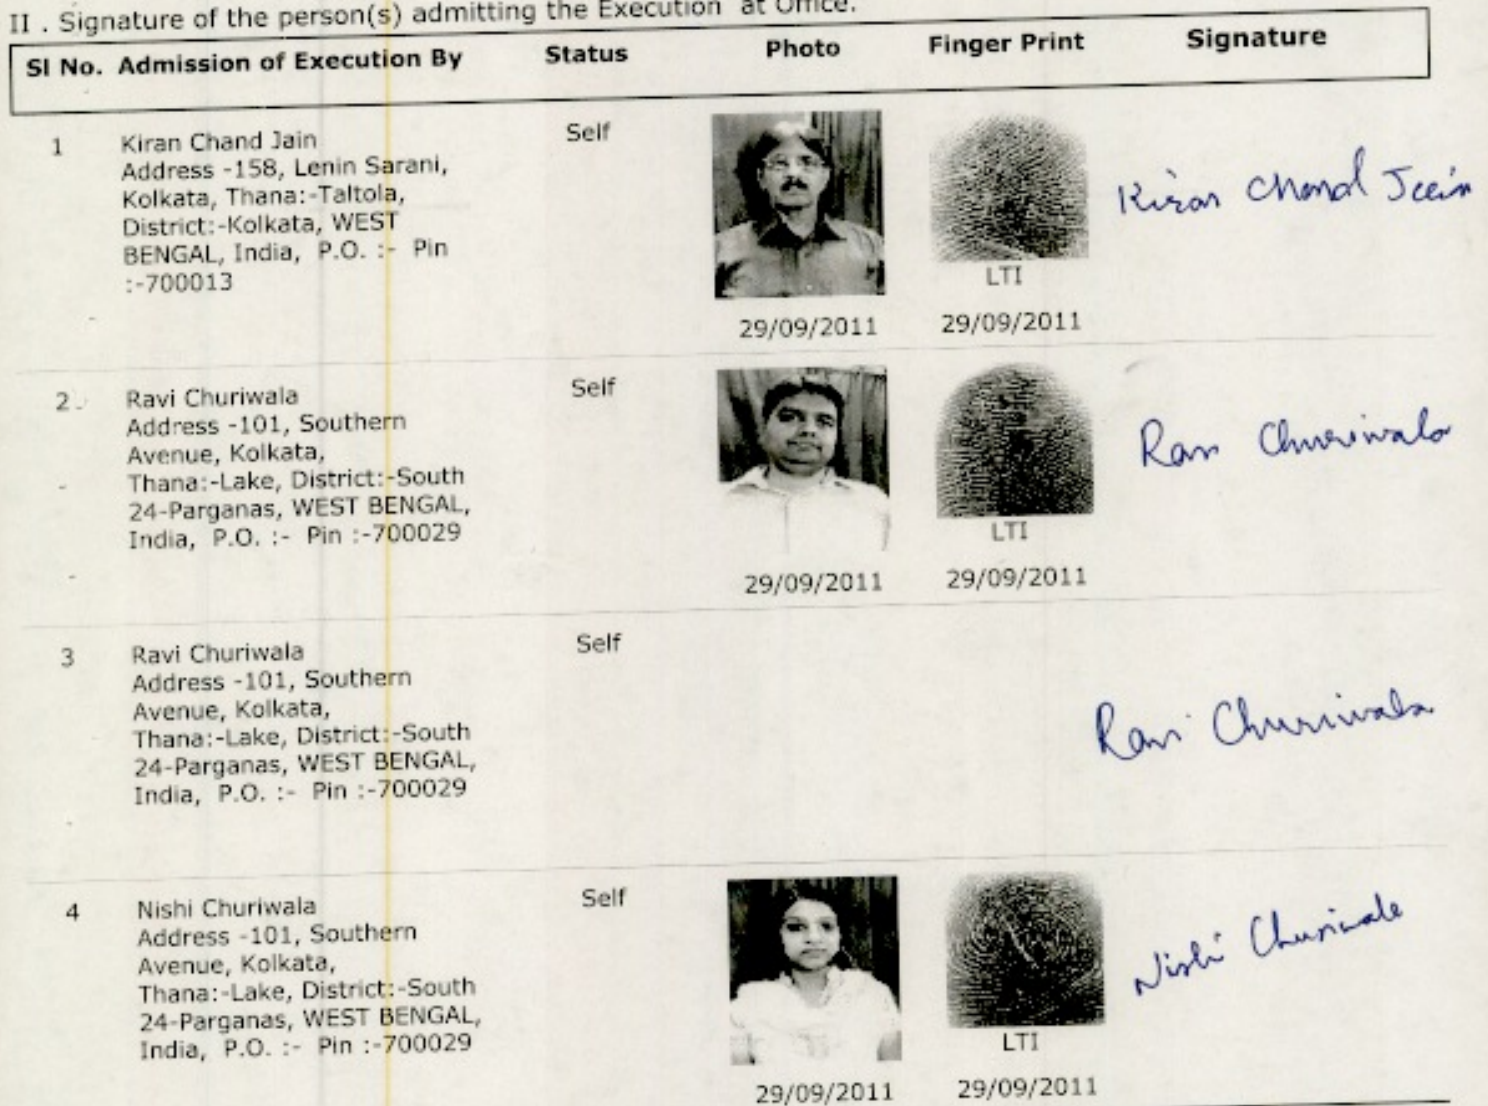 II . Signature of the person(s) admitting the Execution at Office.
Sl No. Admission of Execution By Status Photo Finger Print Signature
1 Kiran Chand Jain Self
Address -158, Lenin Sarani,
Kolkata, Thana:-Taltola,
District:-Kolkata, WEST
BENGAL, India, P.O. :- Pin
:-700013
Kiran Chand Jain
LTI
29/09/2011 29/09/2011
2 Ravi Churiwala Self
Address -101, Southern
Avenue, Kolkata,
Thana:-Lake, District:-South
24-Parganas, WEST BENGAL,
India, P.O. :- Pin :-700029
Ravi Churiwala
LTI
29/09/2011 29/09/2011
3 Ravi Churiwala Self
Address -101, Southern
Avenue, Kolkata,
Thana:-Lake, District:-South
24-Parganas, WEST BENGAL,
India, P.O. :- Pin :-700029
Ravi Churiwala
4 Nishi Churiwala Self
Address -101, Southern
Avenue, Kolkata,
Thana:-Lake, District:-South
24-Parganas, WEST BENGAL,
India, P.O. :- Pin :-700029
Nishi Churiwala
LTI
29/09/2011 29/09/2011